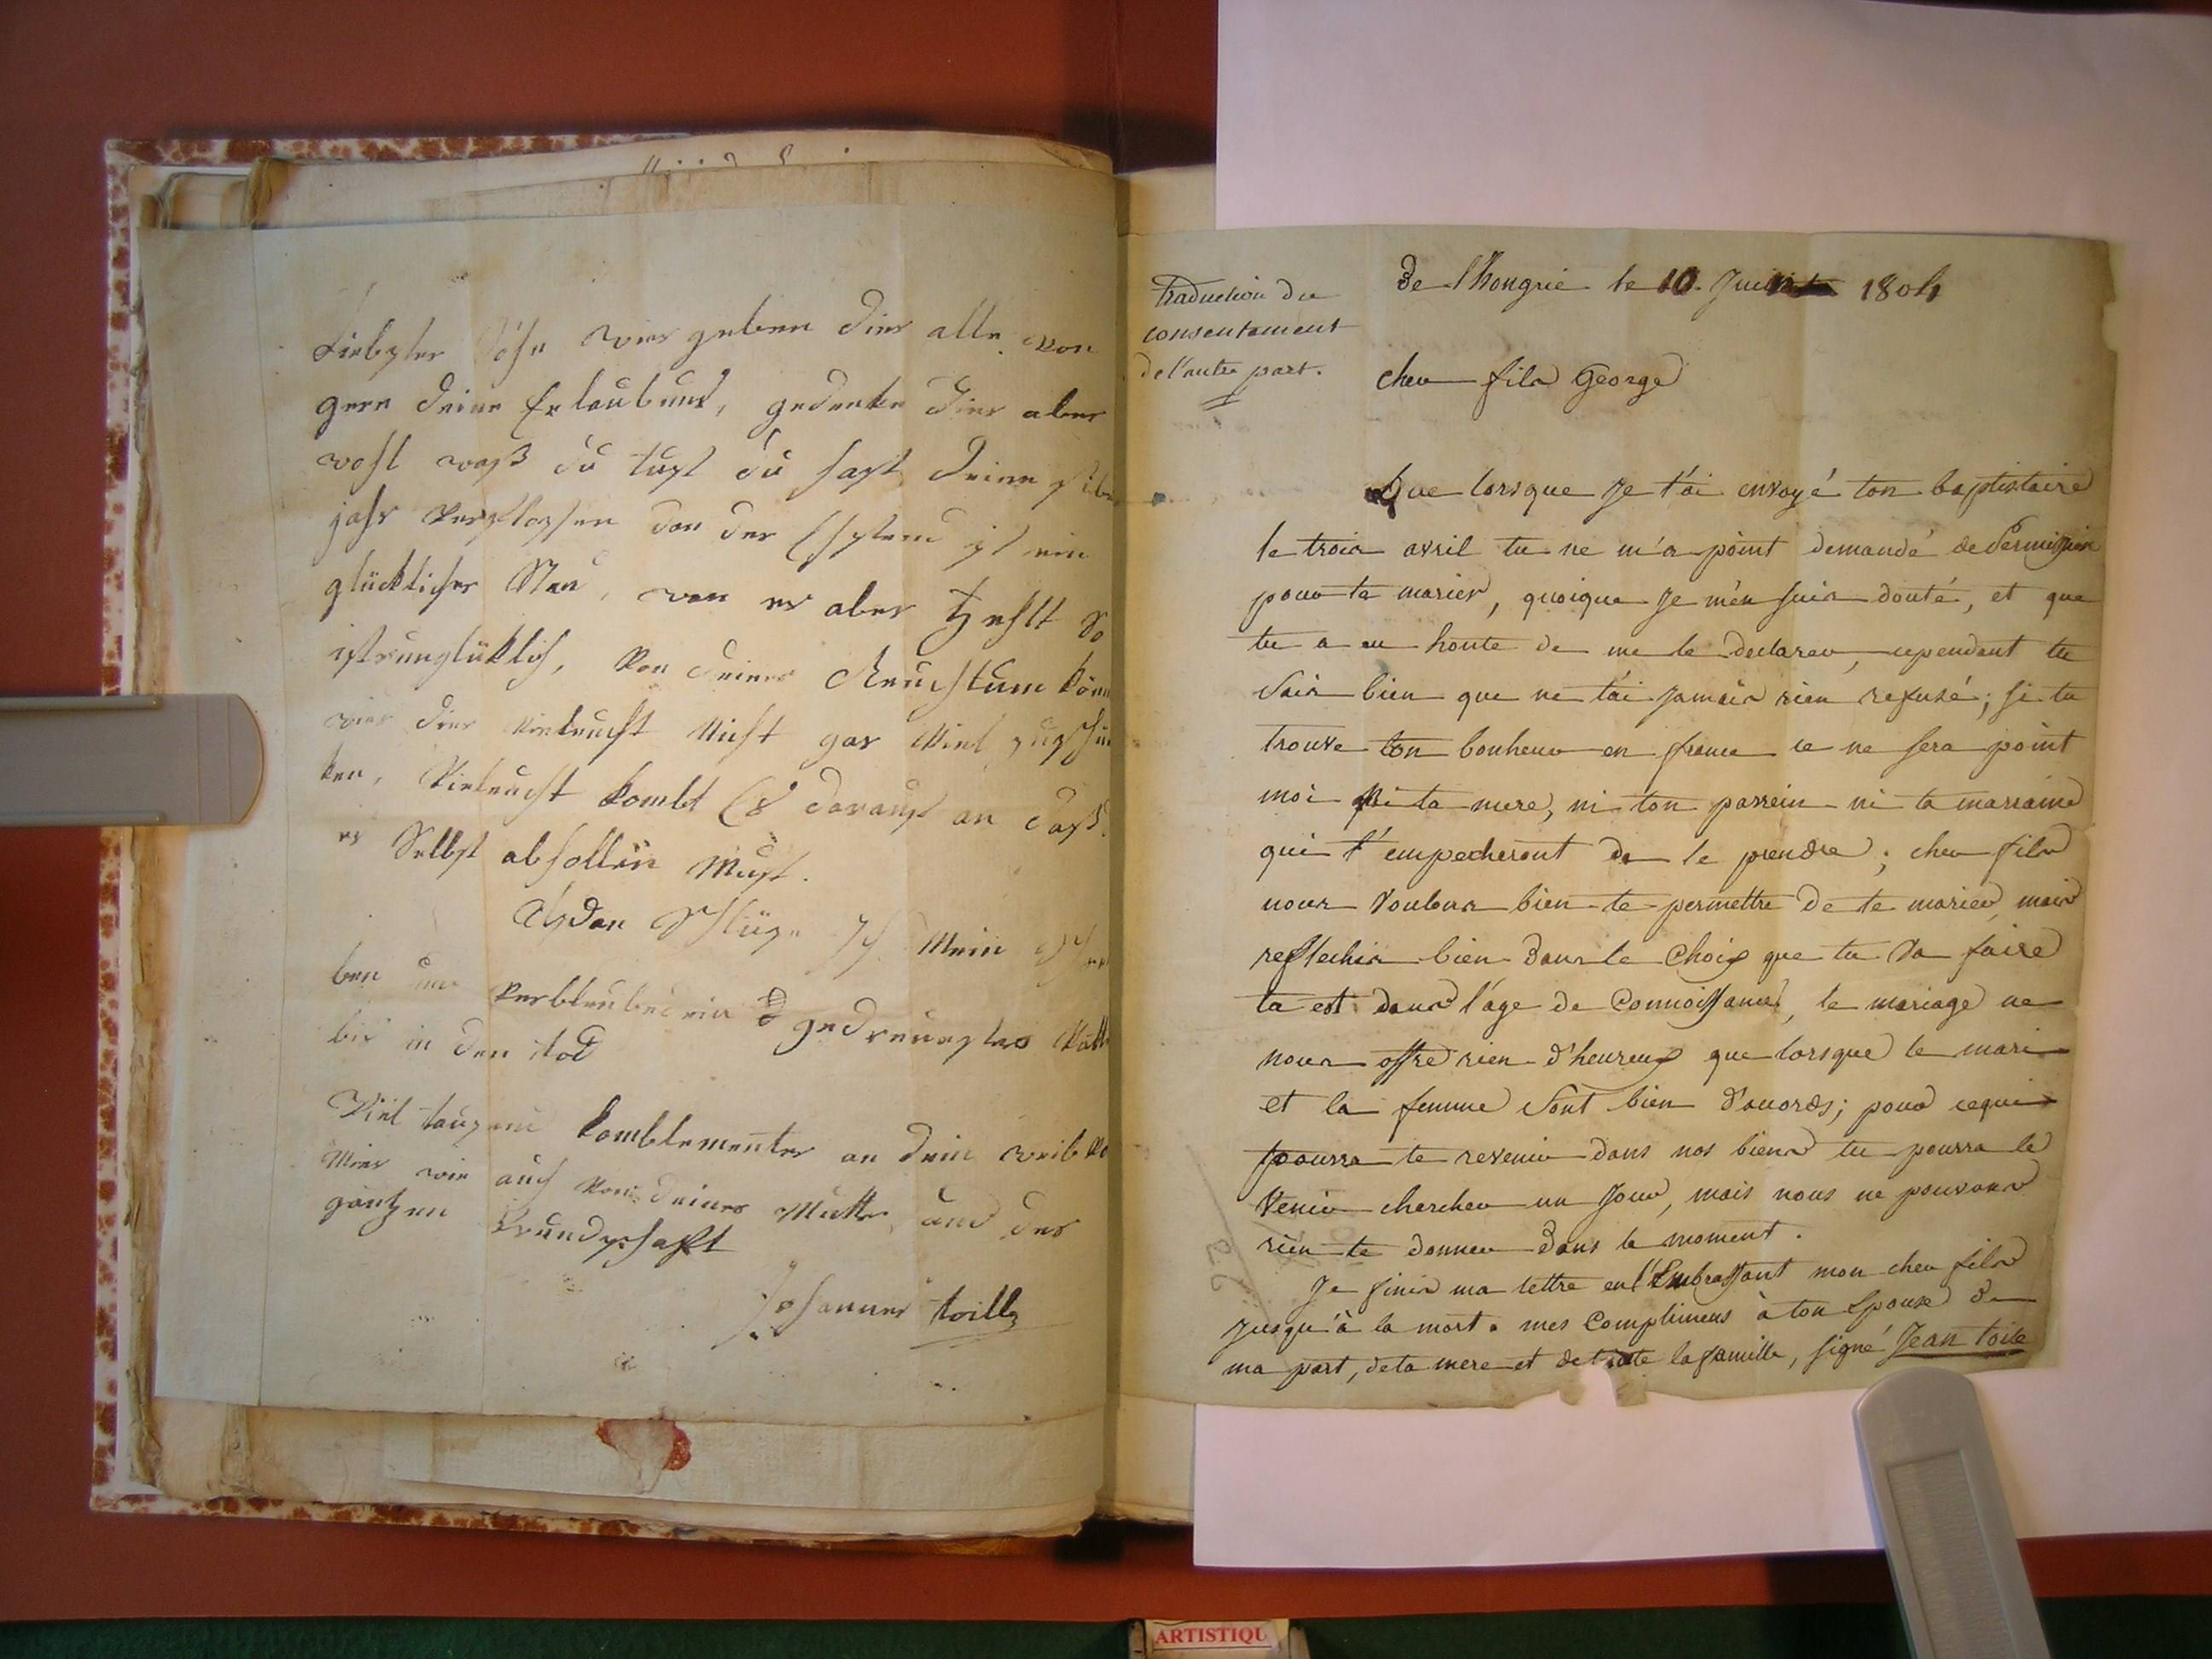 Liebster Sohn wier geben dier alle von
gern deine Erlaubnuß, gedenke dier aber
wohl waß du tust du hast deine
jahr verflossen dan der Ehstand ist ein
glücklicher Stan, wan er aber fehlt So
ist er unglüklich, von deiner
wier dier vieleucht nicht gar viel zuschü
ken, vieleucht kombt Es darauf an daß
es Selbst abhollen must.
Alsdan schlüße Ich Mein schrei
ben und verbleube dein gedreuester Vatter
bis in den tod
Viel tausend komblementer an dein weib vo
mier wie auch von deiner Mutter und der
gantzen freundschaft
Johannes toill
Traduction du
consentement
de l'autre part.
de l'hongrie le 10 Juin 1804
cher fils George
Que lorsque je t'ai envoyé ton baptistaire
le trois avril tu ne m'a point demandé de Permission
pour te marier, quoique je m'en suis douté, et que
tu a eu honte de me le declarer, cependant tu
Sais bien que ne t'ai jamais rien refusé; si tu
trouve ton bonheur en france ce ne sera point
moi ni ta mere, ni ton parrein ni ta marraine
qui t'empecheront de le prendre; cher fils
nous voulons bien te permettre de te marier, mais
reflechis bien dans le Choix que tu va faire
tu est dans l'âge de Connoissance, le mariage ne
nous offre rien d'heureux que lorsque le mari
et la femme Sont bien d'acords; pour cequi
pourra te revenir dans nos biens tu pourra le
Venir chercher un Jour, mais nous ne pouvons
rien te donner dans le moment.
Je finis ma lettre en t'Embrassant mon cher fils
jusqu'à la mort. mes Complimens à ton Epouse de
ma part, de ta mere et de toute la famille, signé Jean toile
ARTISTIQU